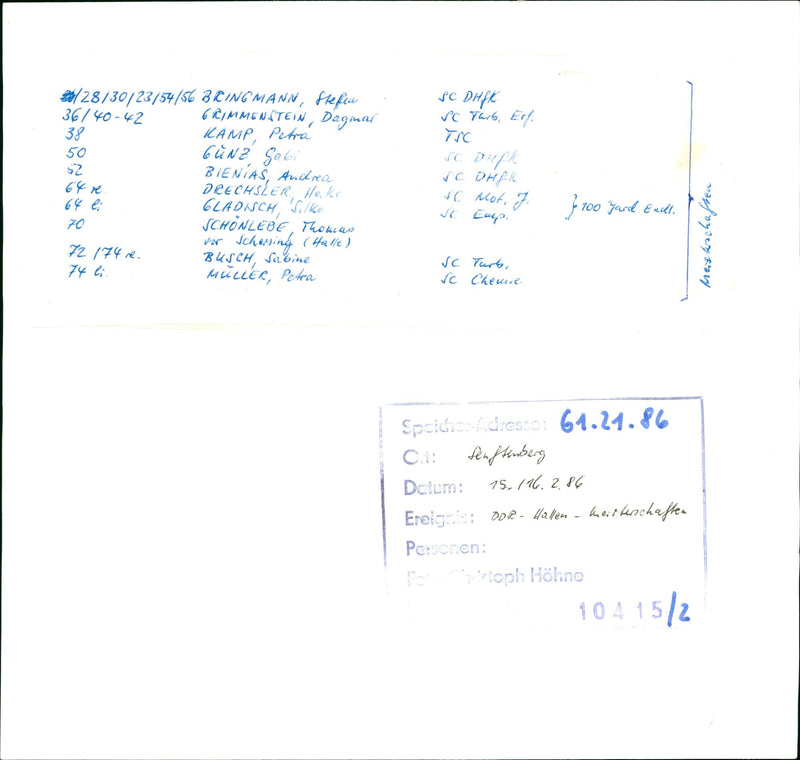 /28/30/23/54/56 BRINGMANN, Stefen SC DHfK
36/40-42 GRIMMENSTEIN, Dagmar SC Turb. Erf.
38 KAMP, Petra TSC
50 GÜNZ, Gabi SC DHfK
52 BIENIAS, Andrea SC DHfK
64 re DRECHSLER, Heike SC Mot. J.
64 li GLADISCH, Silke SC Emp. } 100 Yard Endl.
70 SCHÖNLEBE, Thomas
vor Schersing (Halle)
72/74 re. BUSCH, Sabine SC Turb.
74 li. MÜLLER, Petra SC Chemie
Meisterschaften
Speicher-Adresse: 61.21.86
Ort: Senftenberg
Datum: 15./16.2.86
Ereignis: DDR-Hallen-Meisterschaften
Personen:
Foto: Christoph Höhne
10415/2